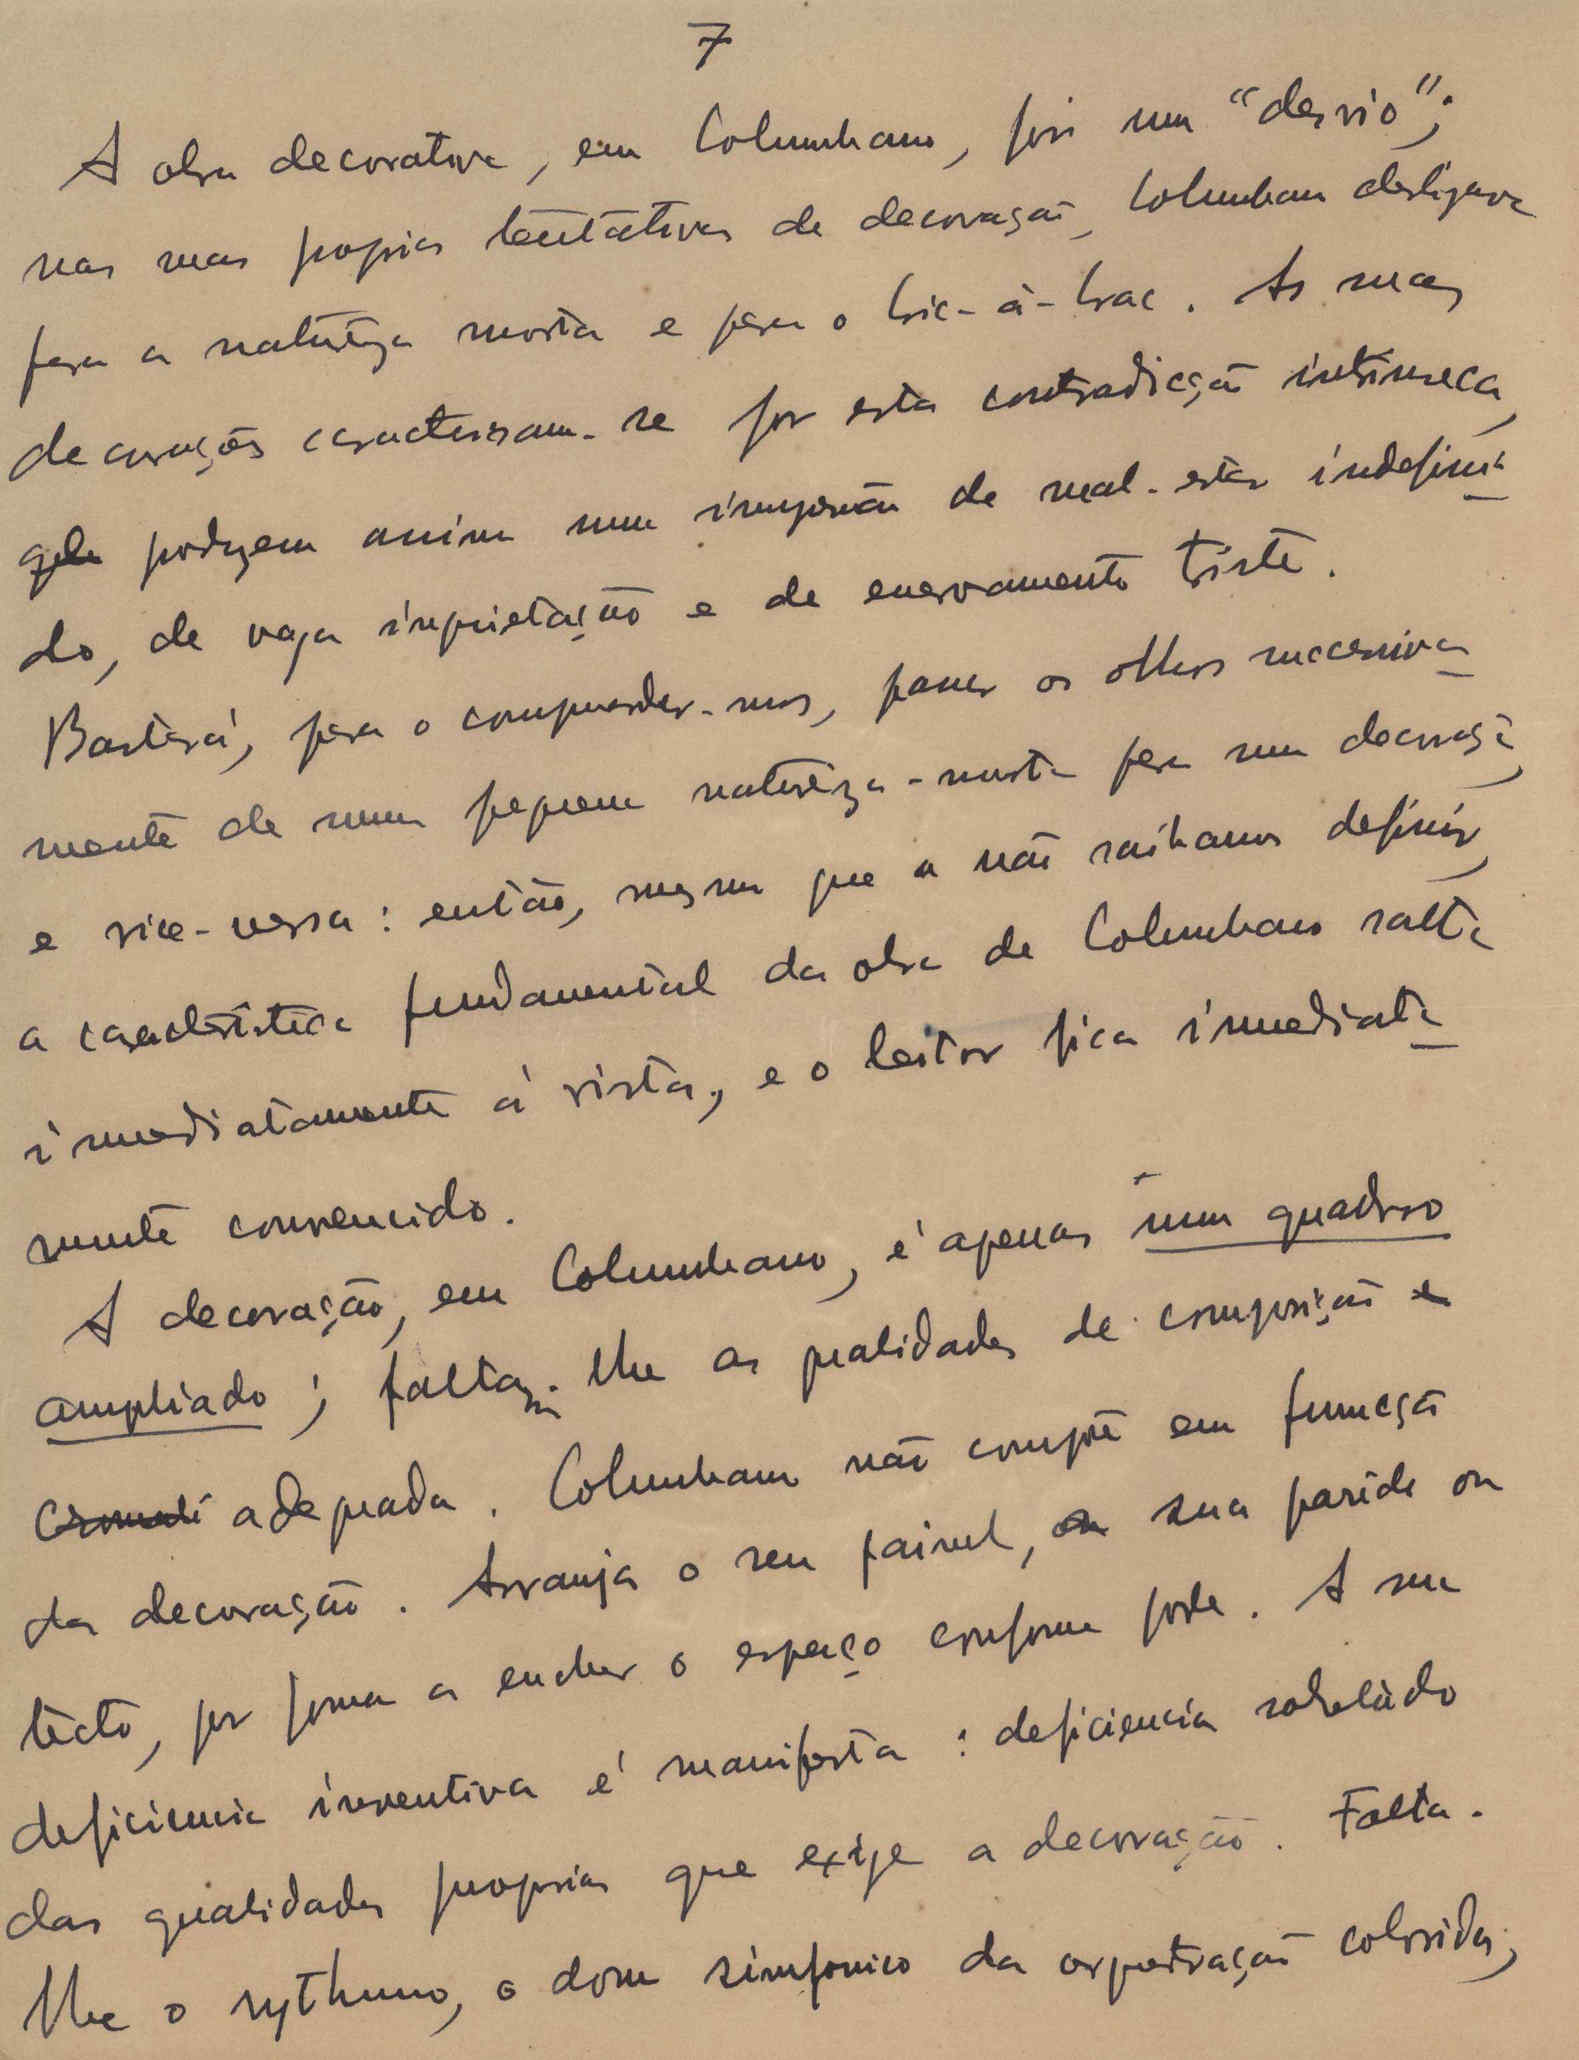 7
A obra decorativa, em Columbano, foi um "desvio";
nas suas proprias tentativas de decoração, Columbano deslizava
para a natureza morta e para o bric-à-brac. As suas
decorações caracterisam-se por esta contradicção intrinseca,
que produzem assim uma impressão de mal-estar indefini-
do, de vaga inquietação e de enervamento triste.
Bastará, para o comprender-mos, passar os olhos successiva-
mente de uma pequena natureza-morta para uma decoração,
e vice-versa: então, mesmo que a não saibamos definir,
a caracteristica fundamental da obra de Columbano salta
immediatamente á vista, e o leitor fica immediata-
mente convencido.
A decoração, em Columbano, é apenas um quadro
ampliado; faltam-lhe as qualidades de composição
adequada. Columbano não compõe em funcção
da decoração. Arranja o seu painel, sua parêde ou
tecto, por forma a encher o espaço conforme pode. A sua
deficiencia inventiva é manifesta: deficiencia sobretudo
das qualidades proprias que exige a decoração. Falta-
lhe o rythmo, o dom simfonico da orquestração colorida,